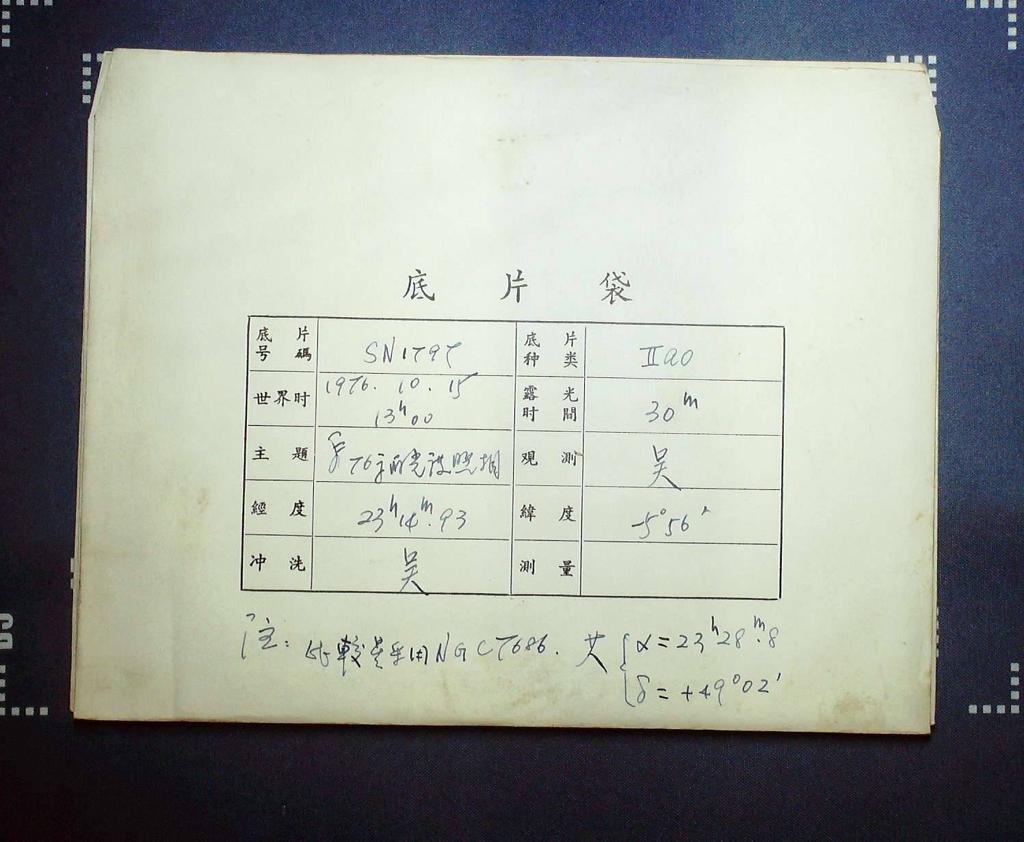 底片袋
底片号碼 SN1797 底片种类 IIaO
世界时 1976. 10. 15 13ʰ00 露光时間 30ᵐ
主題 76 照相 观測 吴
經度 23ʰ14ᵐ.93 緯度 -5°56′
冲洗 吴 測量
注: 比較星采用NGC7686. 其 α=23ʰ28ᵐ.8
δ=+49°02′